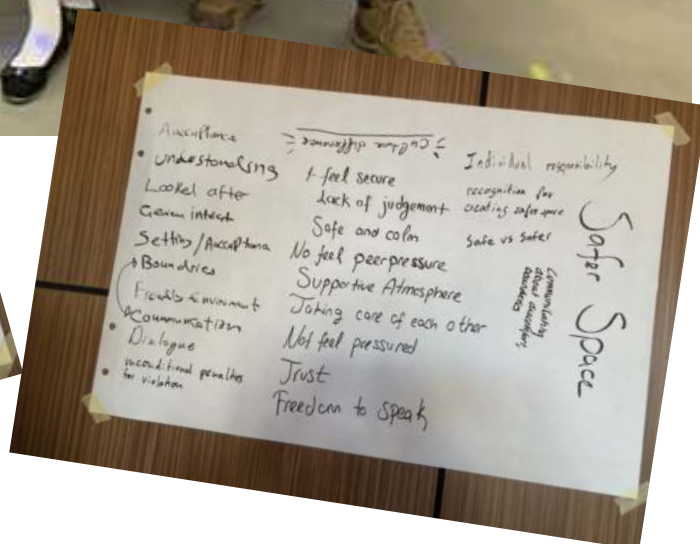 Acceptance
understanding
Looked after
Genuin intrest
Setting/Acceptance
Boundries
Friendly Environment
Communication
Dialogue
unconditional penalties
for violation
Culture difference
feel secure
lack of judgement
Safe and calm
No feel peerpressure
Supportive Atmosphere
Taking care of each other
Not feel pressured
Trust
Freedom to speak
Individual responsibility
recognition for
creating safer space
Safe vs Safer
Communicating
about
boundaries
Safer Space